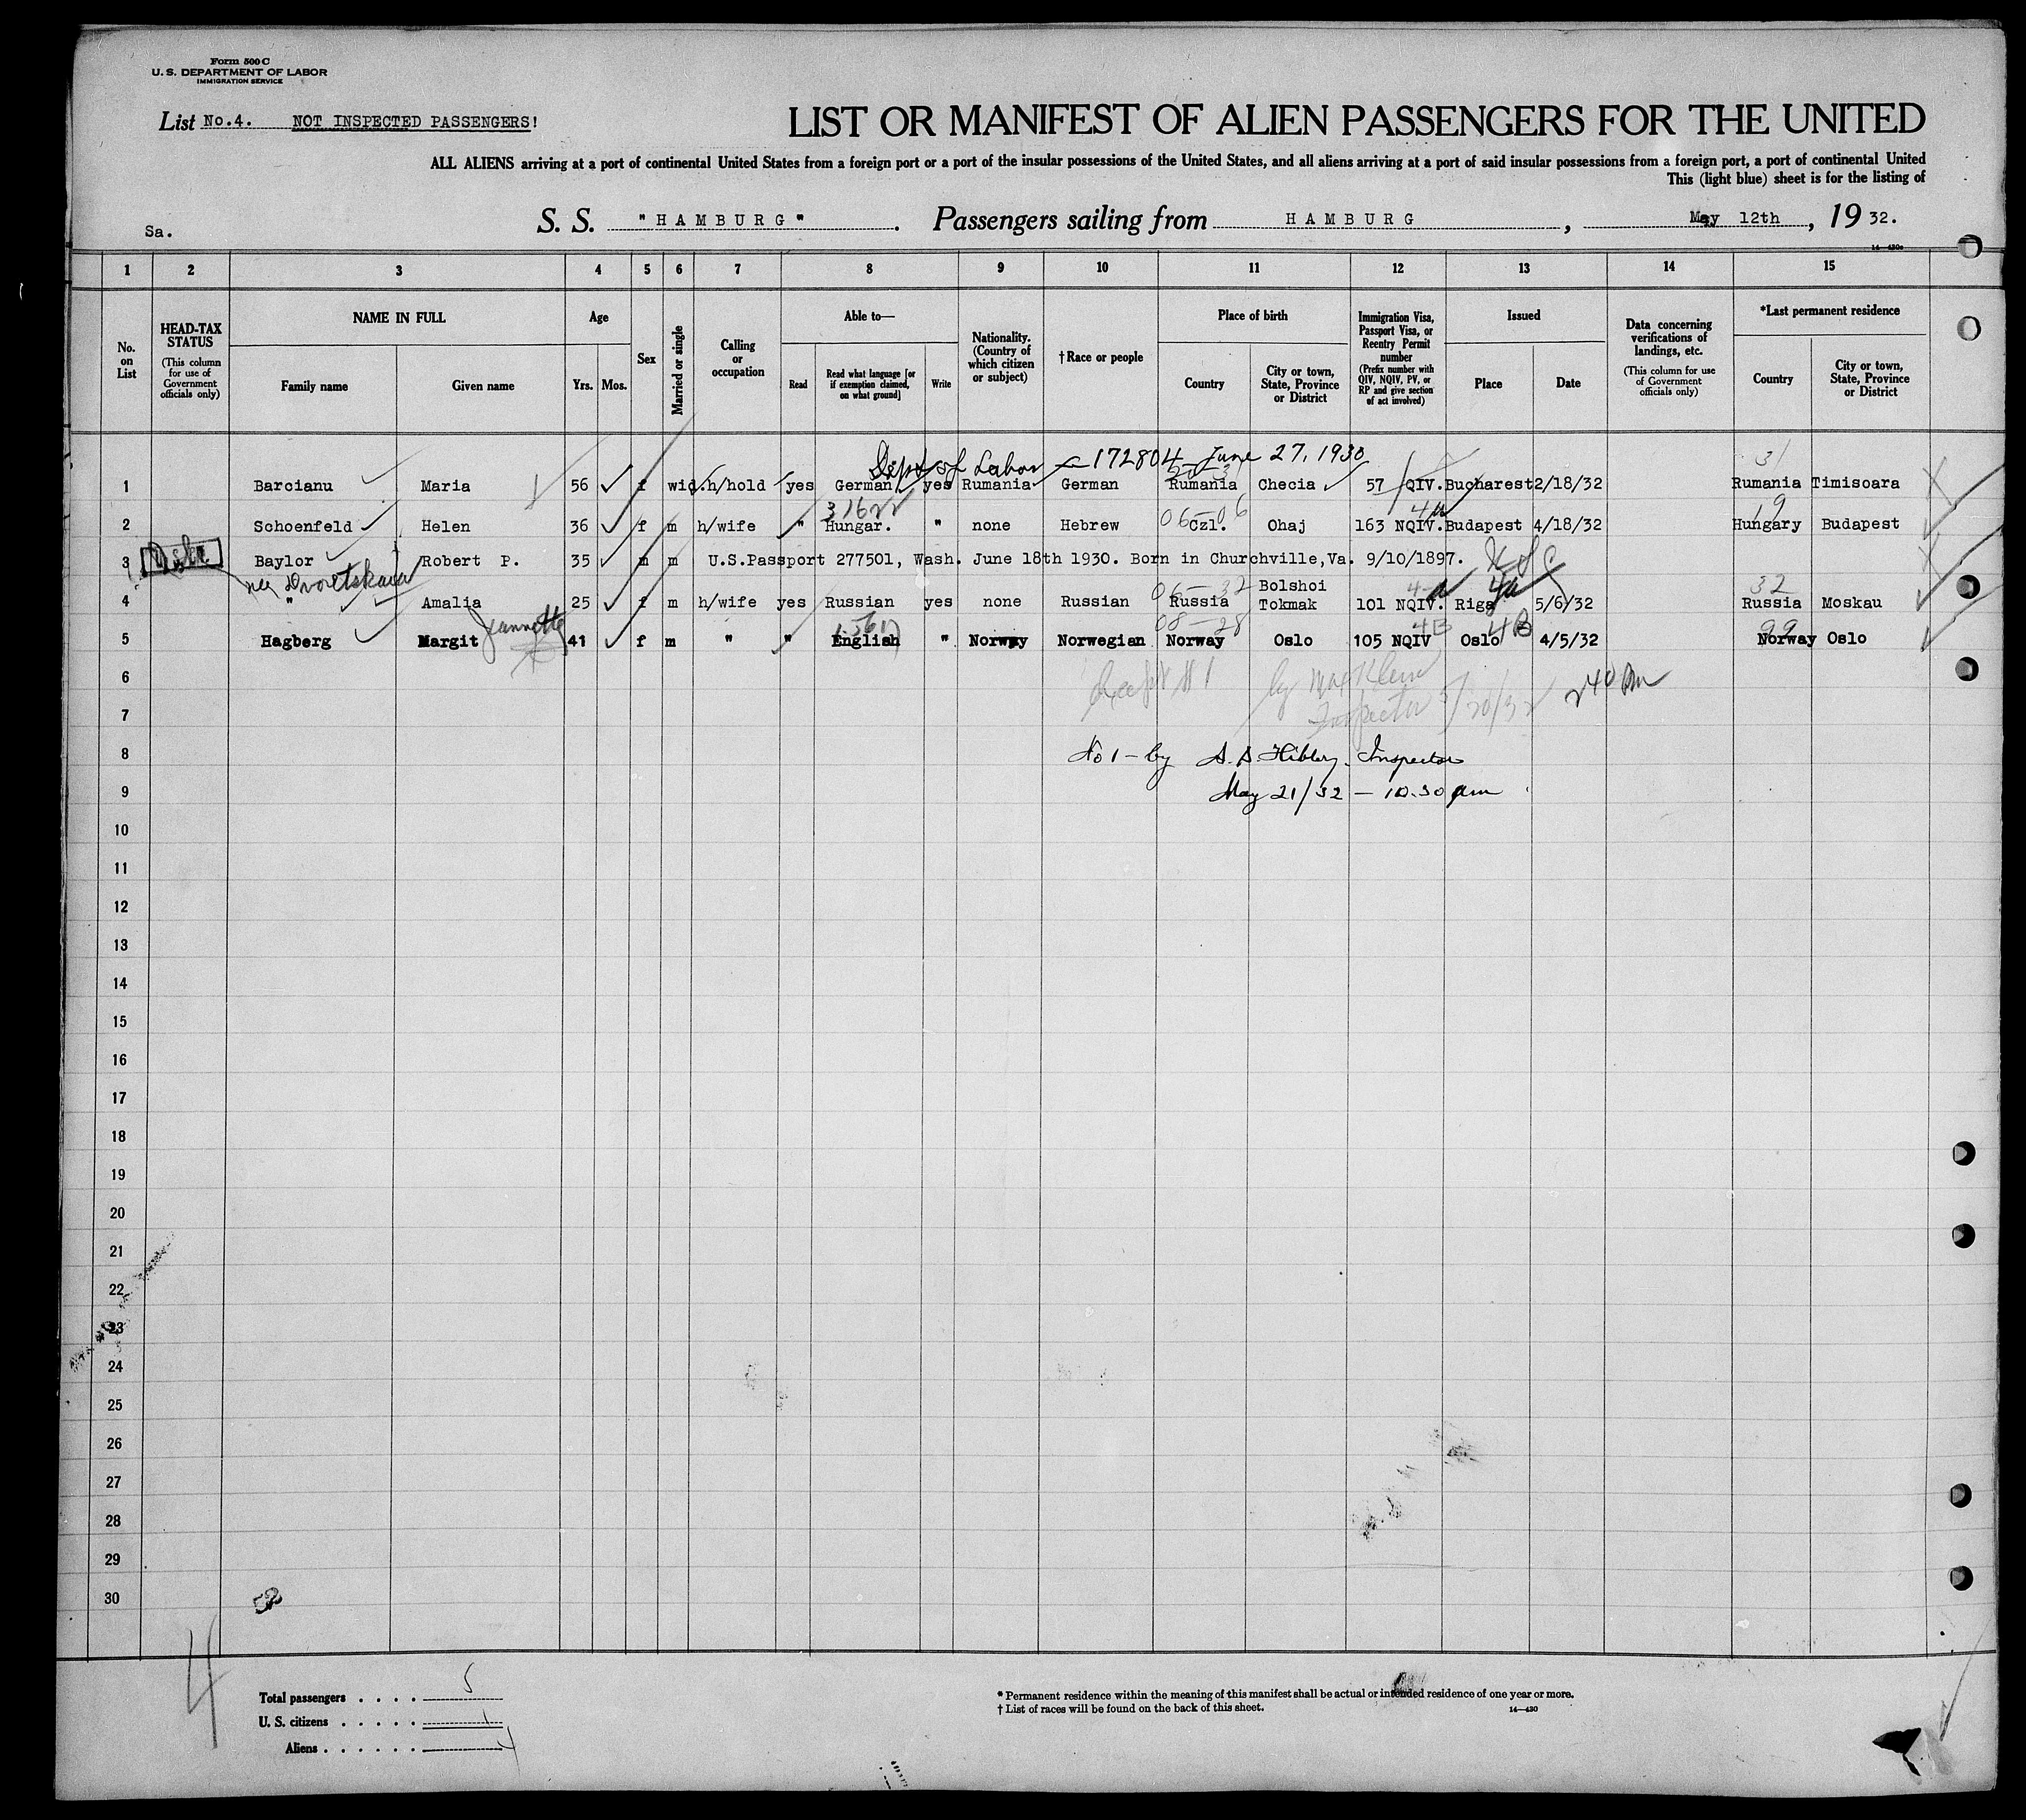 Form 500 C
U. S. DEPARTMENT OF LABOR
IMMIGRATION SERVICE
List No.4. NOT INSPECTED PASSENGERS!
LIST OR MANIFEST OF ALIEN PASSENGERS FOR THE UNITED
ALL ALIENS arriving at a port of continental United States from a foreign port or a port of the insular possessions of the United States, and all aliens arriving at a port of said insular possessions from a foreign port, a port of continental United
This (light blue) sheet is for the listing of
Sa. S. S. "HAMBURG". Passengers sailing from HAMBURG, May 12th, 19 32.
1 2 3 4 5 6 7 8 9 10 11 12 13 14 15
No. on List
HEAD-TAX STATUS (This column for use of Government officials only)
NAME IN FULL
Family name Given name
Age
Yrs. Mos.
Sex
Married or single
Calling or occupation
Able to—
Read Read what language [or if exemption claimed, on what ground] Write
Nationality. (Country of which citizen or subject)
†Race or people
Place of birth
Country City or town, State, Province or District
Immigration Visa, Passport Visa, or Reentry Permit number (Prefix number with QIV, NQIV, PV, or RP and give section of act involved)
Issued
Place Date
Data concerning verifications of landings, etc. (This column for use of Government officials only)
*Last permanent residence
Country City or town, State, Province or District
Dept of Labor 172804 June 27, 1930
31
1 Barcianu Maria 56 f wid. h/hold yes German yes Rumania German Rumania Checia 57 QIV. Bucharest 2/18/32 Rumania Timisoara
31622 06-06 4a 19
2 Schoenfeld Helen 36 f m h/wife " Hungar. " none Hebrew Czl. Ohaj 163 NQIV. Budapest 4/18/32 Hungary Budapest
3 Baylor Robert P. 35 m m U.S.Passport 277501, Wash. June 18th 1930. Born in Churchville,Va. 9/10/1897. USC
nee Dvoretskaya 06-32 4a 32
4 " Amalia 25 f m h/wife yes Russian yes none Russian Russia Bolshoi Tokmak 101 NQIV. Riga 5/6/32 Russia Moskau
Jeannette 08-28 4B 4B 99
5 Hagberg Margit 41 f m " " English " Norway Norwegian Norway Oslo 105 NQIV Oslo 4/5/32 Norway Oslo
6 Except #1 by Max Klein 240 Pm
7 Inspector 5/20/32
8 No 1 - by Inspector
9 May 21/32 - 10.30 am
10
11
12
13
14
15
16
17
18
19
20
21
22
23
24
25
26
27
28
29
30
4
Total passengers . . . . 5
U. S. citizens . . . . . 1
Aliens . . . . . . 4
* Permanent residence within the meaning of this manifest shall be actual or intended residence of one year or more.
† List of races will be found on the back of this sheet. 14—430